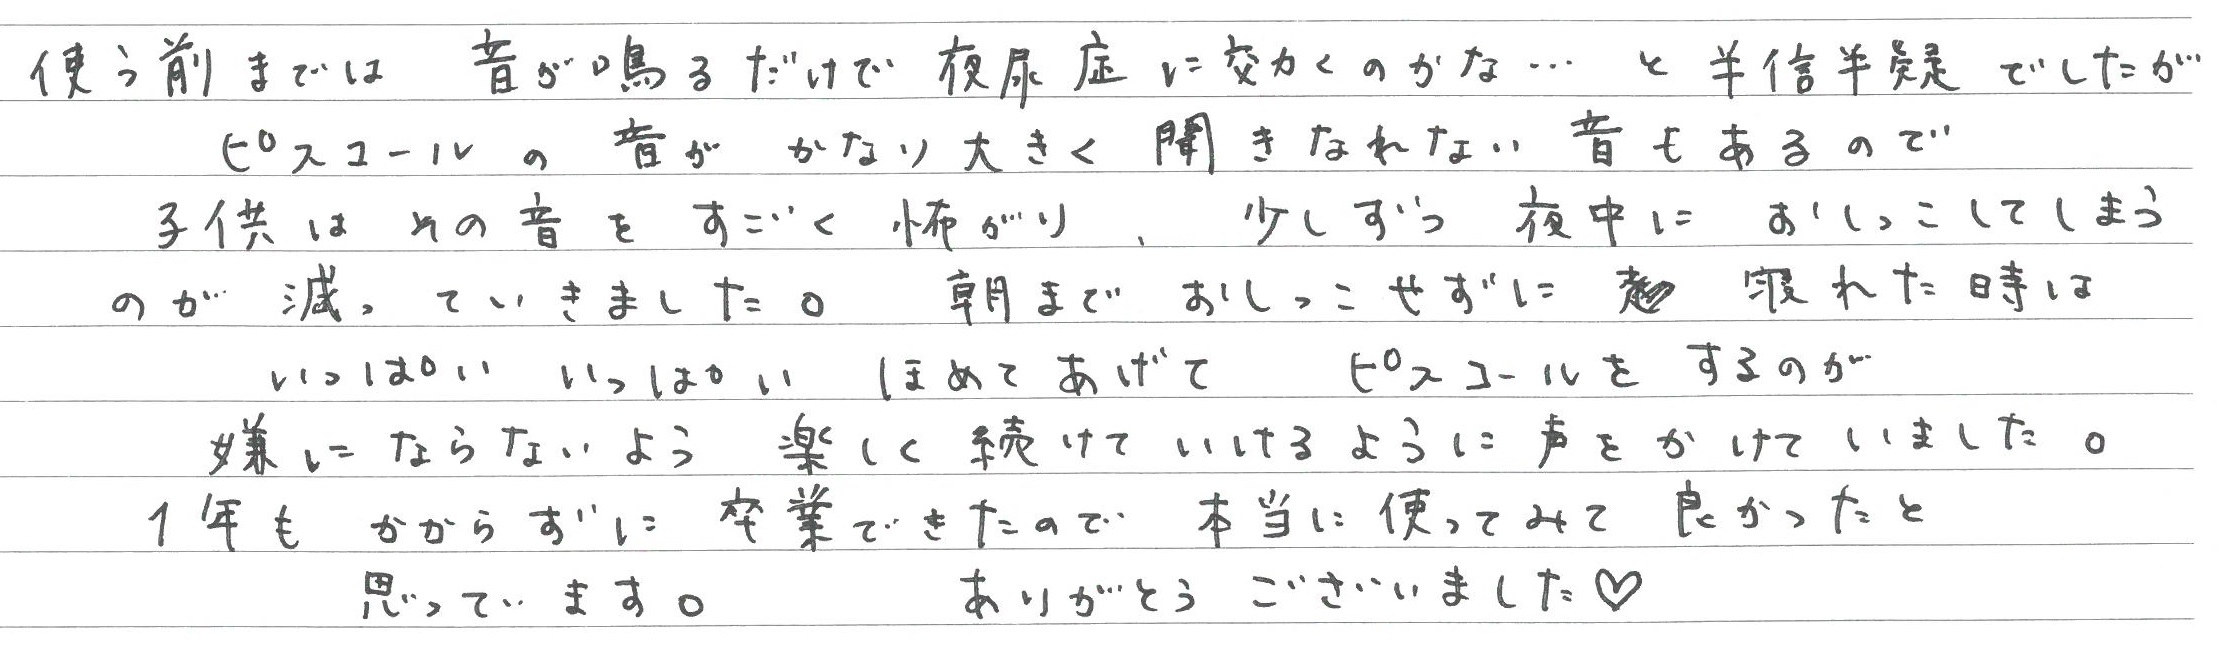 使う前までは 音が鳴るだけで 夜尿症に効くのかな… と半信半疑でしたが
ピスコールの音が かなり大きく 聞きなれない音もあるので
子供は その音を すごく怖がり、 少しずつ 夜中に おしっこしてしまう
のが 減っていきました。 朝まで おしっこせずに 寝れた時は
いっぱい いっぱい ほめてあげて ピスコールをするのが
嫌にならないよう 楽しく続けていけるように声をかけていました。
1年も かからずに 卒業できたので 本当に使ってみて 良かったと
思っています。 ありがとう ございました♡